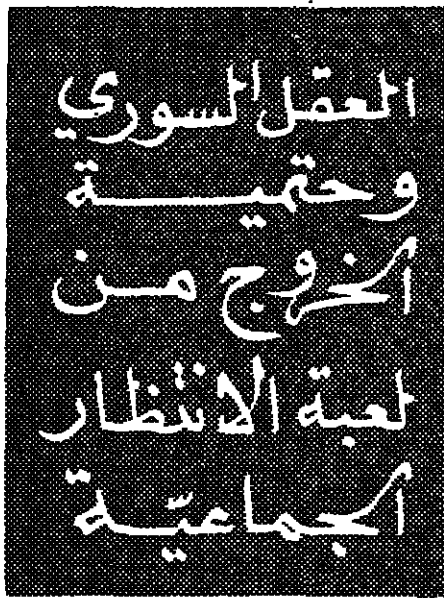 العقل السوري
وحتمية
الخروج من
لعبة الانتظار
الجماعيّة